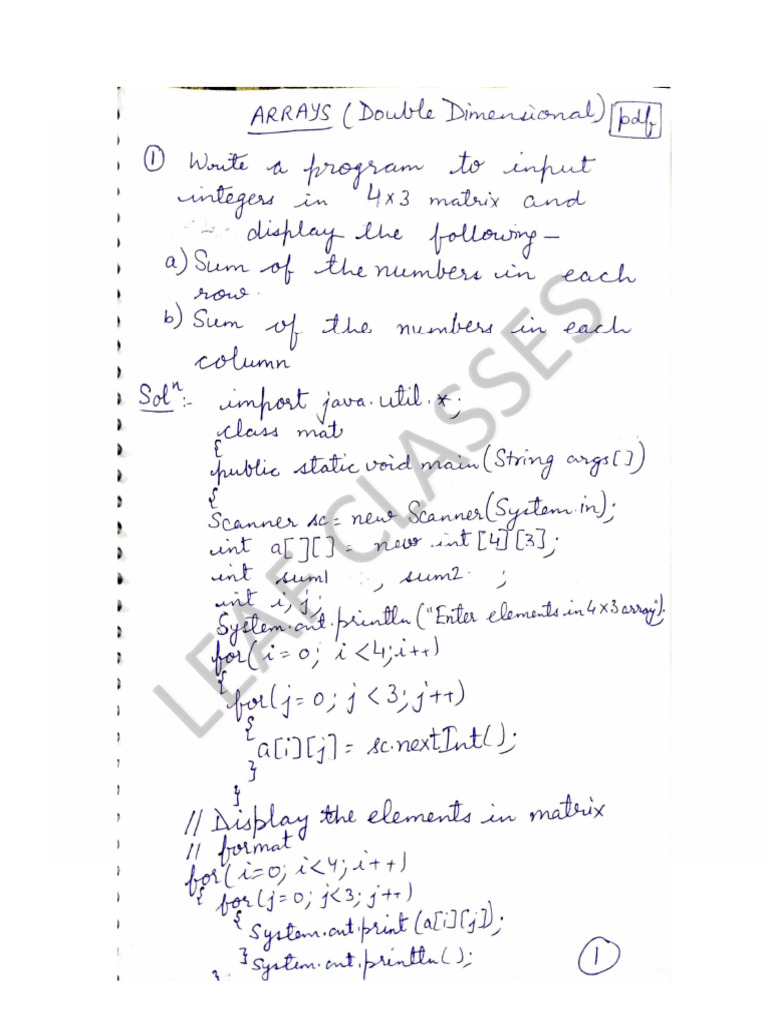 ARRAYS (Double Dimensional) pdf
① Write a program to input
integers in 4x3 matrix and
display the following -
a) Sum of the numbers in each
row.
b) Sum of the numbers in each
column
Solⁿ:- import java.util.*;
class mat
{
public static void main(String args[])
{
Scanner sc = new Scanner(System.in);
int a[][] = new int[4][3];
int sum1 , sum2 ;
int i, j;
System.out.println("Enter elements in 4x3 array");
for(i=0; i<4; i++)
{
for(j=0; j<3; j++)
{
a[i][j] = sc.nextInt();
}
}
// Display the elements in matrix
// format
for(i=0; i<4; i++)
{ for(j=0; j<3; j++)
{ System.out.print(a[i][j]);
} System.out.println();
}
①
LEAF CLASSES